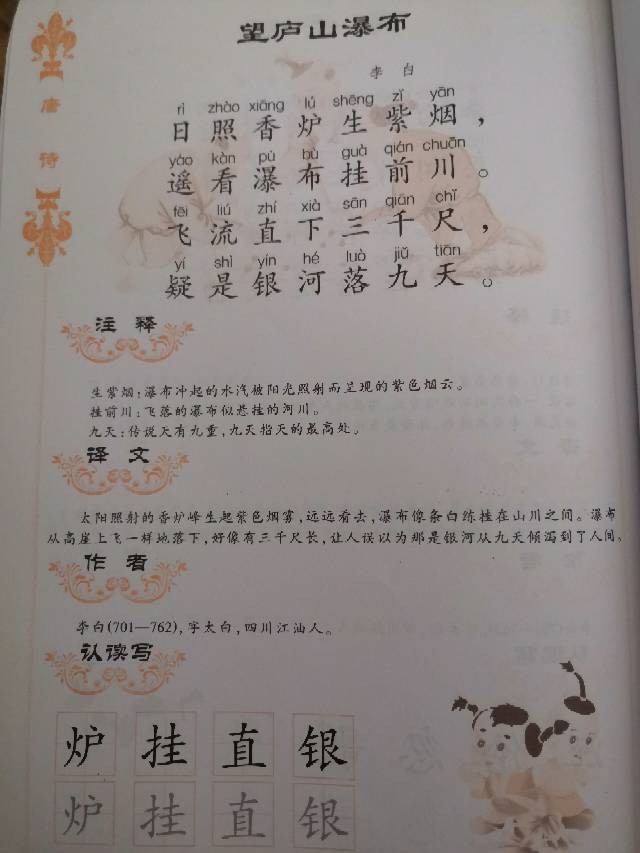 唐诗
望庐山瀑布
李白
rì zhào xiāng lú shēng zǐ yān
日照香炉生紫烟，
yáo kàn pù bù guà qián chuān
遥看瀑布挂前川。
fēi liú zhí xià sān qiān chǐ
飞流直下三千尺，
yí shì yín hé luò jiǔ tiān
疑是银河落九天。
注释
生紫烟：瀑布冲起的水汽被阳光照射而呈现的紫色烟云。
挂前川：飞落的瀑布似悬挂的河川。
九天：传说天有九重，九天指天的最高处。
译文
太阳照射的香炉峰生起紫色烟雾，远远看去，瀑布像条白练挂在山川之间。瀑布
从高崖上飞一样地落下，好像有三千尺长，让人误以为那是银河从九天倾泻到了人间。
作者
李白(701—762)，字太白，四川江油人。
认读写
炉挂直银
炉挂直银